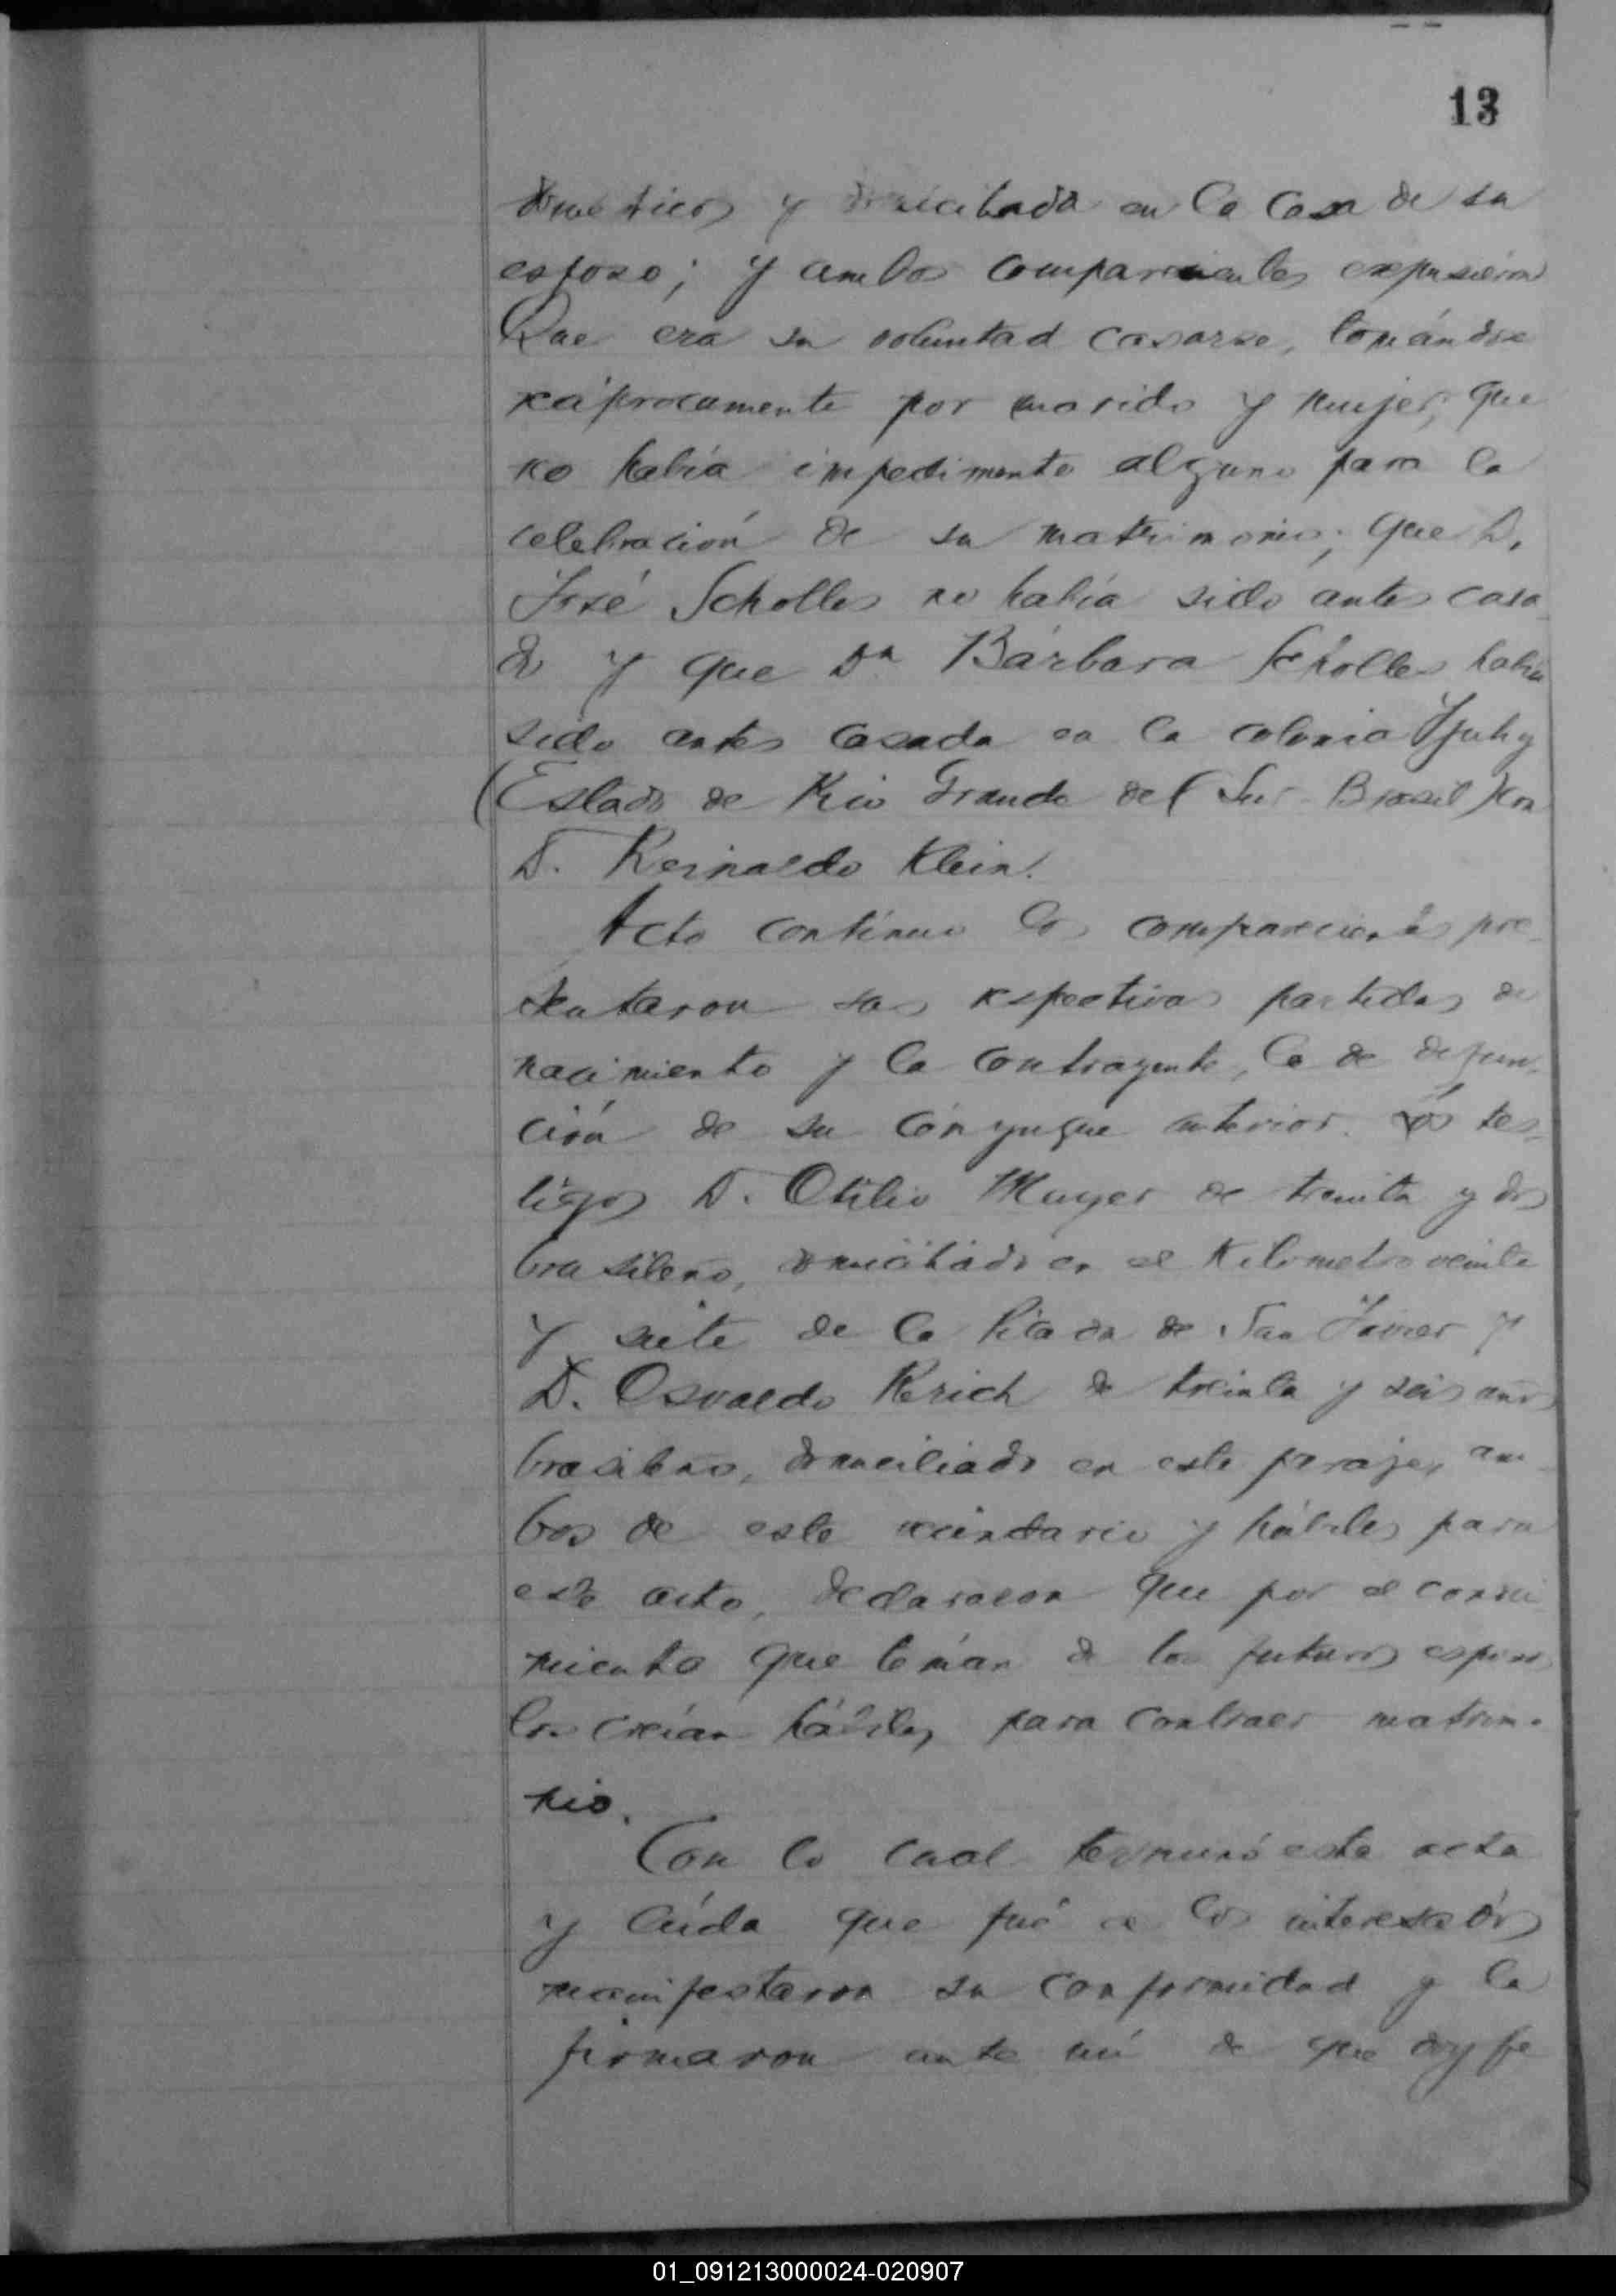 13
domésticos y domiciliada en la casa de su
esposo; y ambos comparecientes expusieron
Que era su voluntad casarse, tomándose
recíprocamente por marido y mujer, que
no había impedimento alguno para la
celebración de su matrimonio; que D.
José Scholles no había sido antes casa-
do y que Dª Bárbara Scholles había
sido antes casada en la colonia Yjuhy
(Estado de Rio Grande del Sur-Brasil) con
D. Reinaldo Klein.
Acto contínuo los comparecientes pre-
sentaron sus respectivas partidas de
nacimiento y la contrayente, la de defun-
ción de su cónyugue anterior. Los tes-
tigos D. Otilio Mayer de treinta y dos
brasileño, domiciliado en el Kilometro veinte
y siete de la Picada de San Javier y
D. Osvaldo Kerich de treinta y seis años
brasileño, domiciliado en este paraje, am-
bos de este vecindario y hábiles para
este acto, declararon que por el conoci-
miento que tenían de los futuros esposos
los creían hábiles para contraer matrimo-
nio.
Con lo cual terminó esta acta
y leída que fué a los interesados
manifestaron su conformidad y la
firmaron ante mí de que doy fe
01_091213000024-020907